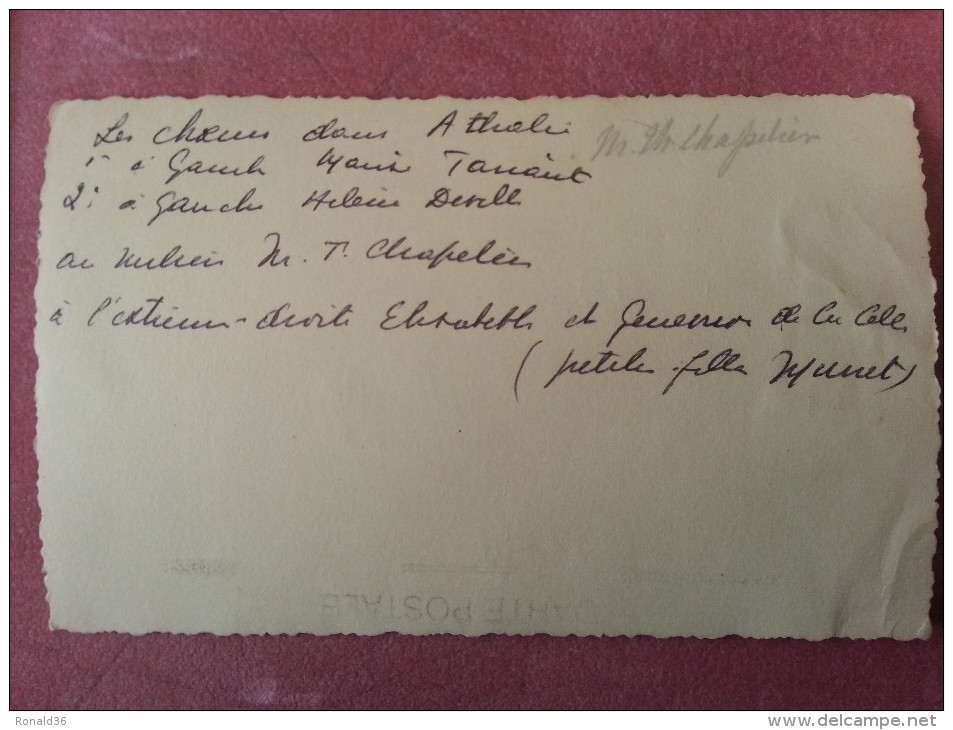 Les chœurs dans Athalie
M. Th Chapelier
1e à Gauche Tanant
2e à Gauche Hélène
au milieu M. T. Chapelier
à l'extrême-droite Elisabeth et Geneviève de la
(petites-filles Munet)
CARTE POSTALE
Ronald36
www.delcampe.net